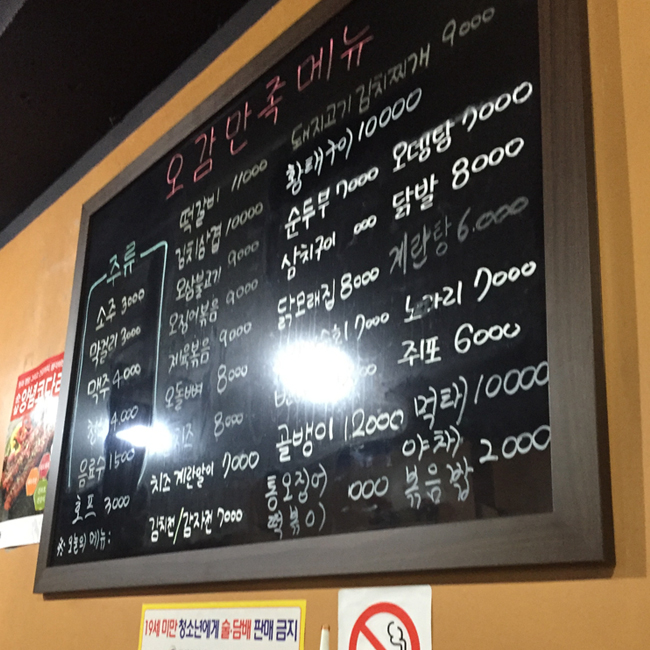 오감만족메뉴
주류
소주 3000
막걸리 3000
맥주 4.000
4.000
음료수 1500
호프 3000
※오늘의 메뉴:
떡갈비 11000
김치삼겹 10000
오삼불고기 9000
오징어볶음 9000
제육볶음 9000
오돌뼈 8000
치즈 8000
치즈계란말이 7000
김치전/감자전 7000
돼지고기김치찌개 9000
황태구이 10000
순두부 7000
삼치구이 000
닭모래집 8000
7000
골뱅이 12000
통오징어
떡볶이 000
오뎅탕 7000
닭발 8000
계란탕 6.000
노가리 7000
쥐포 6000
먹태 10000
야채
볶음밥 2000
왕념코다리
19세 미만 청소년에게 술·담배 판매 금지